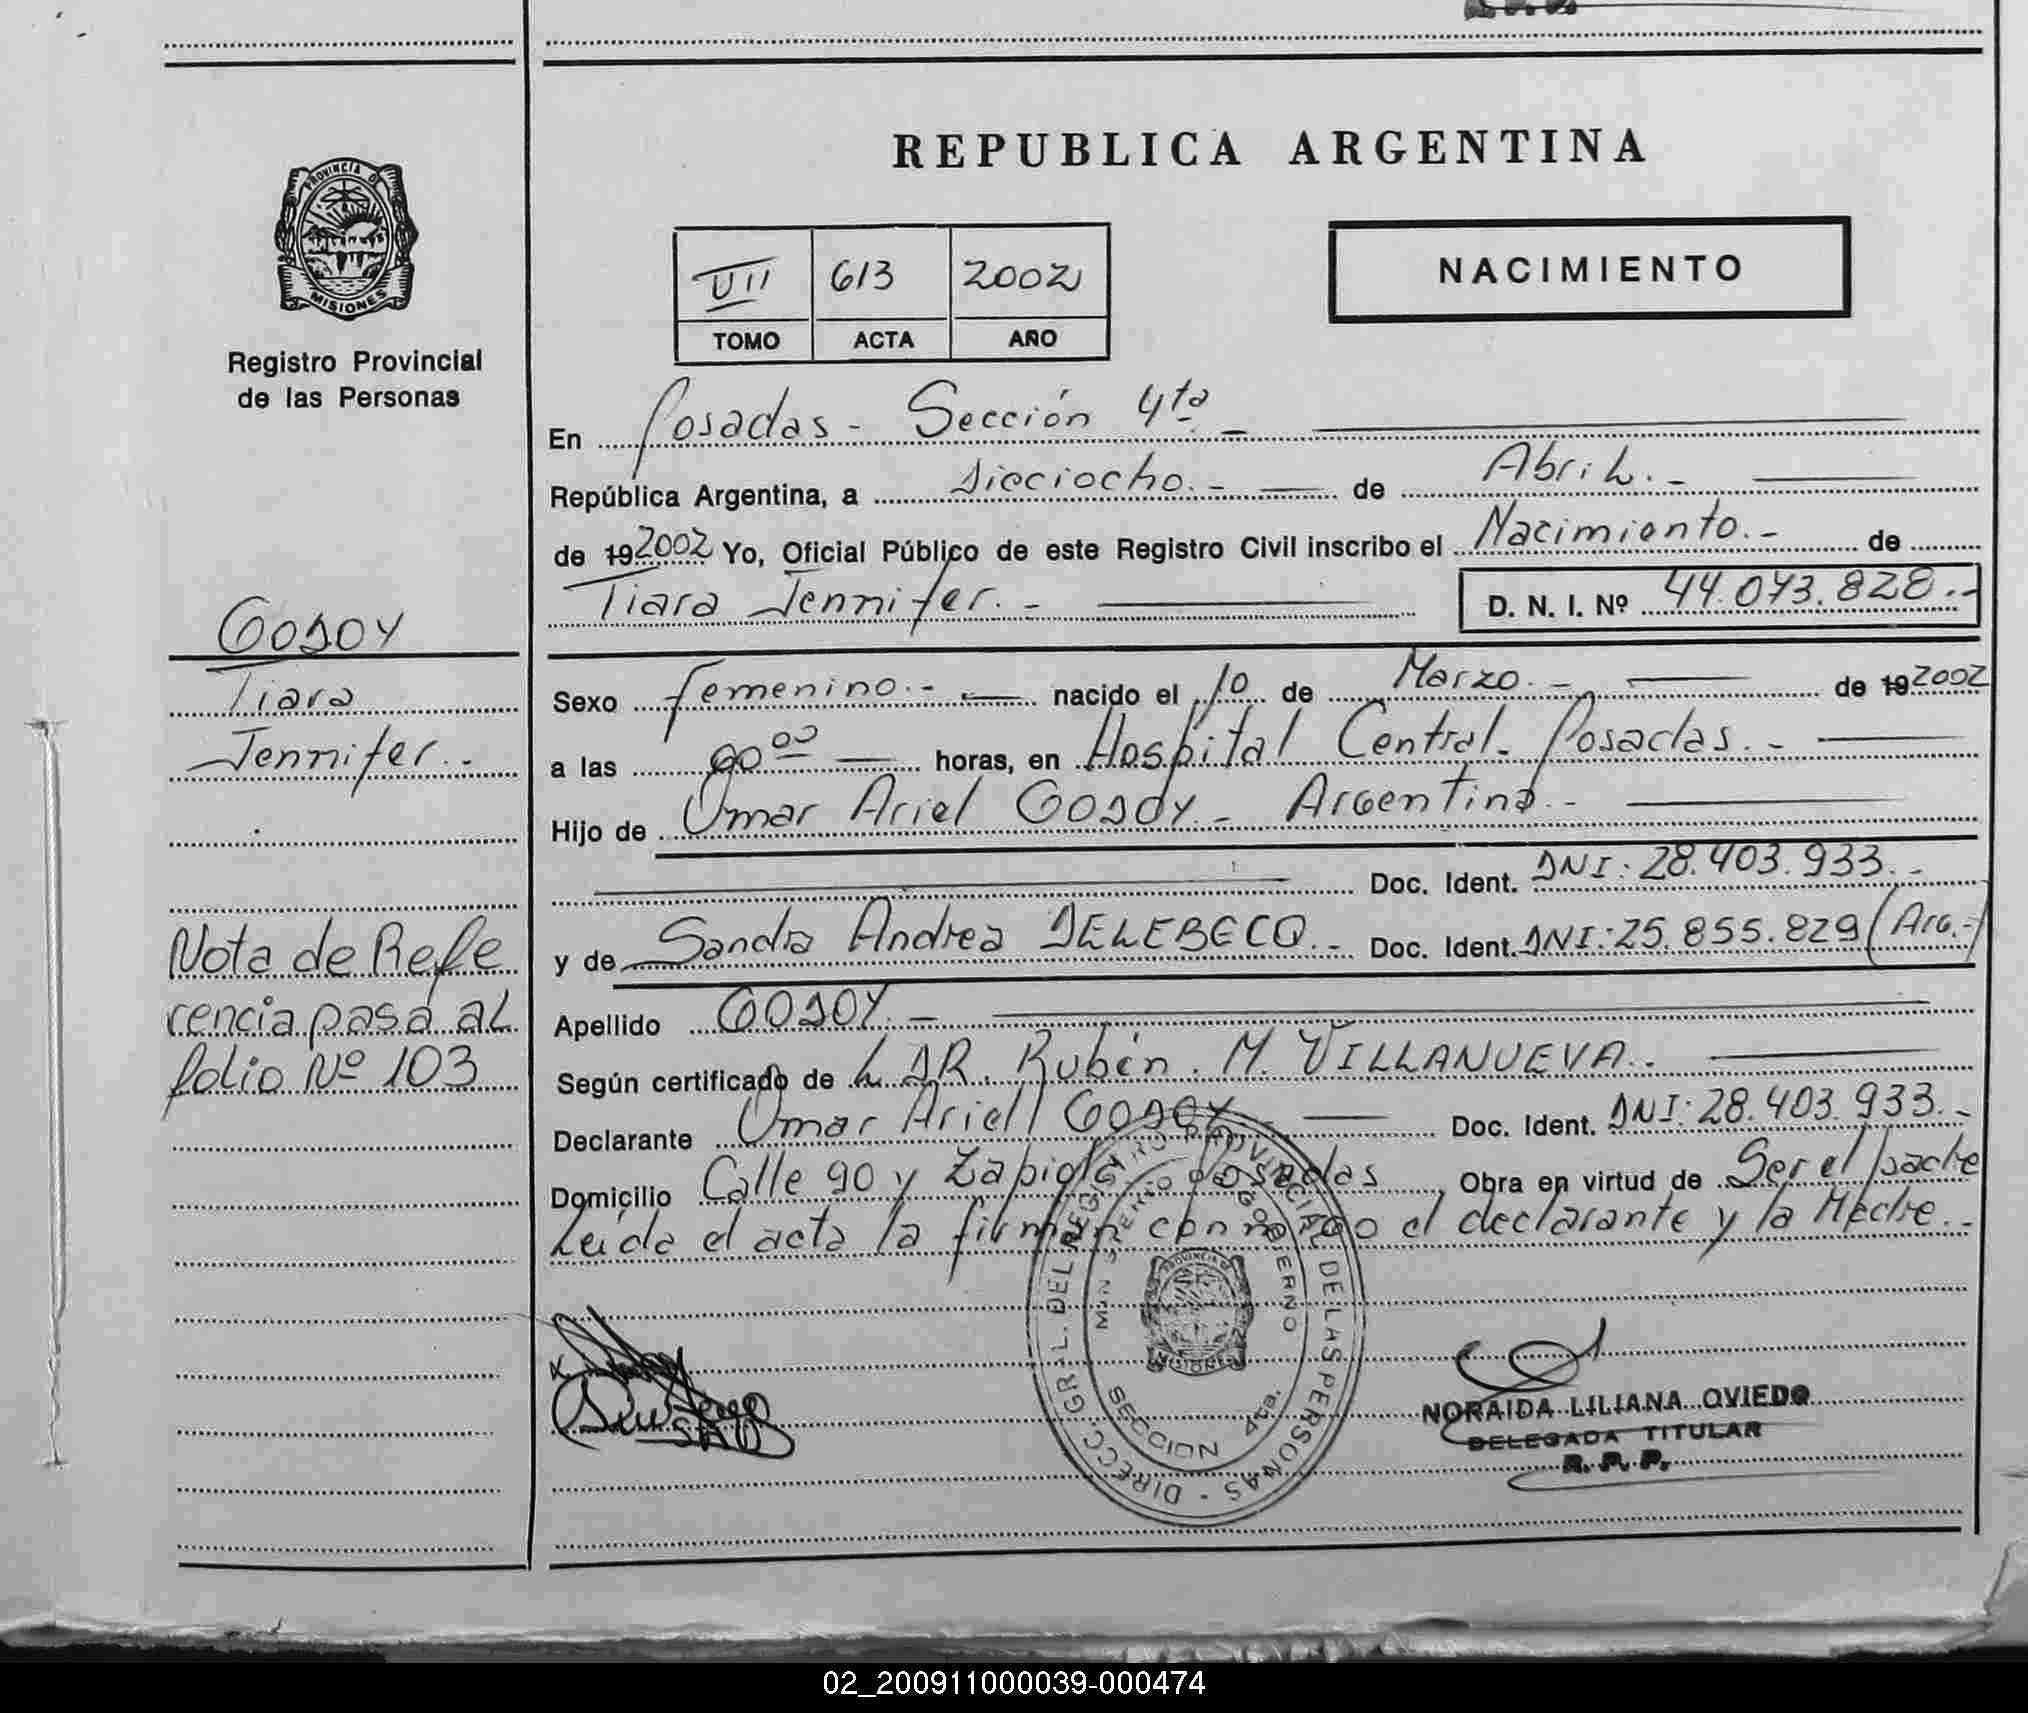 REPUBLICA ARGENTINA
PROVINCIA DE
MISIONES
Registro Provincial
de las Personas
VII 613 2002
TOMO ACTA AÑO
NACIMIENTO
En Posadas - Sección 4ta -
República Argentina, a Dieciocho.- de Abril.-
de 192002 Yo, Oficial Público de este Registro Civil inscribo el Nacimiento.- de
Tiara Jennifer.- D. N. I. Nº 44.073.828.-
GODOY
Tiara
Jennifer.-
Sexo femenino.- nacido el 10 de Marzo.- de 192002
a las 00 horas, en Hospital Central. Posadas.-
Hijo de Omar Ariel GODOY.- Argentino.-
Doc. Ident. DNI: 28.403.933.-
y de Sandra Andrea DELEBECQ.- Doc. Ident. DNI: 25.855.829 (Arg.-)
Apellido GODOY.-
Según certificado de L DR. Rubén. M. VILLANUEVA.-
Declarante Omar Ariell GODOY - Doc. Ident. DNI: 28.403.933.-
Domicilio Calle 90 y Zapiola - Posadas Obra en virtud de Ser el padre
Leída el acta la firman conmigo el declarante y la Madre.-
Nota de Refe
rencia pasa al
folio Nº 103
DIRECC. GRAL. DEL REGISTRO PROVINCIAL DE LAS PERSONAS
GOBIERNO
PROVINCIA DE
MISIONES
SECCION 4ta.
NORAIDA LILIANA OVIEDO
DELEGADA TITULAR
R. P. P.
02_200911000039-000474